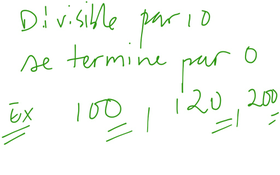 Divisible par 10
se termine par 0
Ex 100, 120, 200